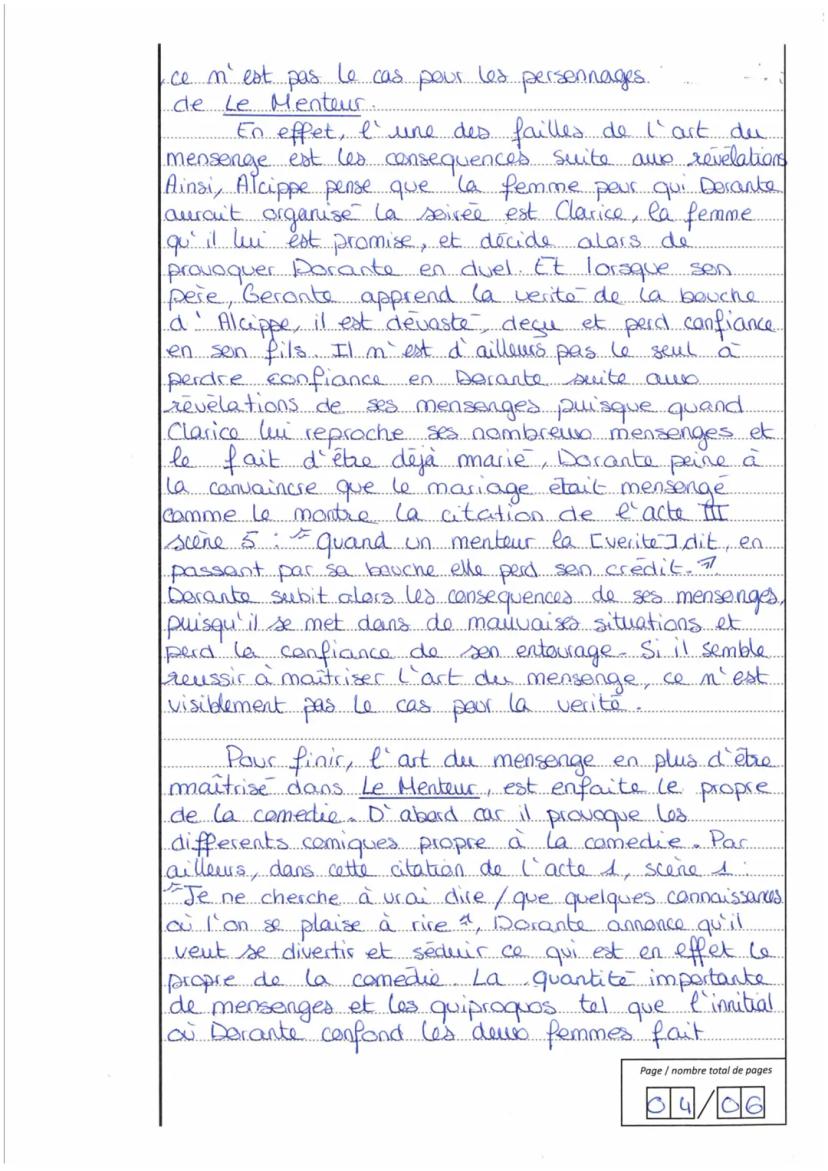 ce n'est pas le cas pour les personnages
de Le Menteur.
En effet, l'une des failles de l'art du
mensenge est les consequences suite aux révélations
Ainsi, Alcippe pense que la femme pour qui Dorante
aurait organisé la soirée est Clarice, la femme
qu'il lui est promise, et décide alors de
provoquer Dorante en duel. Et lorsque son
père, Geronte apprend la verité de la bouche
d'Alcippe, il est dévasté, deçu et perd confiance
en son fils. Il n'est d'ailleurs pas le seul à
perdre confiance en Dorante suite aux
révélations de ses mensonges puisque quand
Clarice lui reproche ses nombreux mensenges et
le fait d'être déjà marié, Dorante peine à
la convaincre que le mariage était mensenge
comme le montre la citation de l'acte III
scène 5 : "Quand un menteur la [verité] dit, en
passant par sa bouche elle perd son crédit."
Dorante subit alors les consequences de ses mensenges,
puisqu'il se met dans de mauvaises situations et
perd la confiance de son entourage. Si il semble
reussir à maîtriser l'art du mensenge, ce n'est
visiblement pas le cas pour la verité.
Pour finir, l'art du mensenge en plus d'être
maîtrisé dans Le Menteur, est enfaite le propre
de la comedie. D'abord car il provoque les
differents comiques propre à la comedie. Par
ailleurs, dans cette citation de l'acte 1, scène 1 :
"Je ne cherche à vrai dire / que quelques connaissances
où l'on se plaise à rire", Dorante annonce qu'il
veut se divertir et séduir ce qui est en effet le
propre de la comedie. La quantité importante
de mensenges et les quiproquos tel que l'innitial
où Dorante confond les deux femmes fait
Page / nombre total de pages
04/06